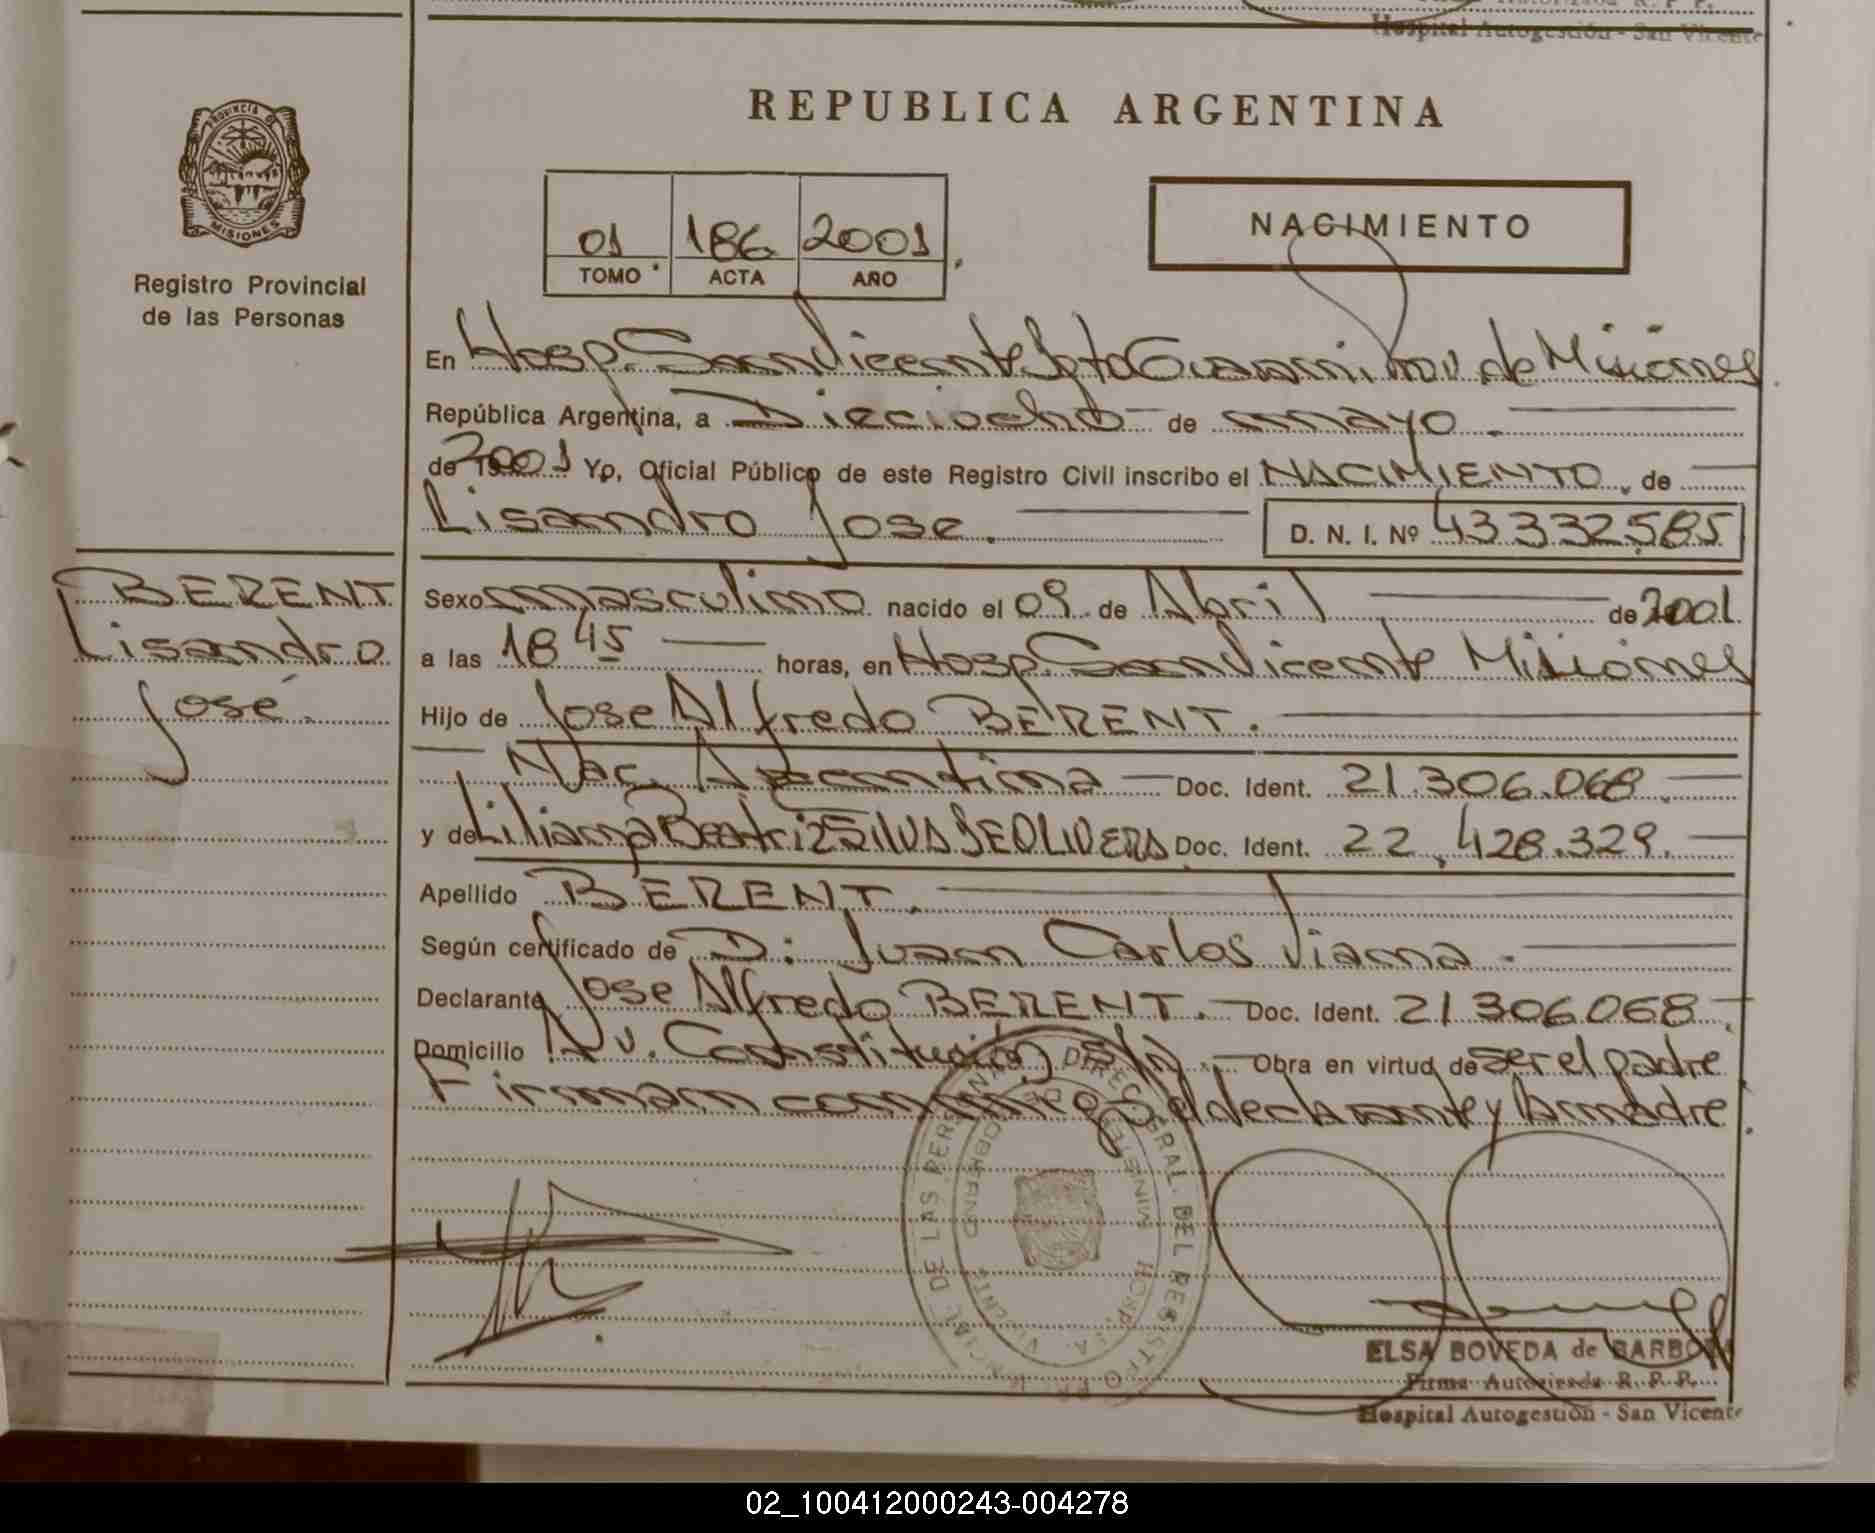 Hospital Autogestión - San Vicente
REPUBLICA ARGENTINA
PROVINCIA D
MISIONES
Registro Provincial
de las Personas
01 186 2001
TOMO ACTA AÑO
NACIMIENTO
En Hosp. San Vicente Dpto Guarani Prov. de Misiones
República Argentina, a Dieciocho de mayo.
de 2001 Yo, Oficial Público de este Registro Civil inscribo el NACIMIENTO, de
Lisandro Jose. D. N. I. Nº 43332585
BERENT
Lisandro
José.
Sexo masculino nacido el 09 de Abril de 2001
a las 18 45 horas, en Hosp. San Vicente Misiones
Hijo de Jose Alfredo BERENT.
Nac. Argentina Doc. Ident. 21.306.068
y de Liliana Beatriz SILVA DE OLIVERA Doc. Ident. 22.428.329.
Apellido BERENT.
Según certificado de D: Juan Carlos Viana.
Declarante Jose Alfredo BERENT. Doc. Ident. 21306068
Domicilio Av. Constitución S/N. Obra en virtud de ser el padre
Firman conmigo el declarante y la madre
ELSA BOVEDA de BARBOZA
Firma Autorizada R. P. P.
Hospital Autogestión - San Vicente
02_100412000243-004278